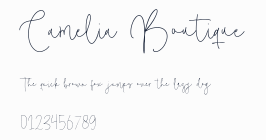 Camelia Boutique
The quick brown fox jumps over the lazy dog
0123456789